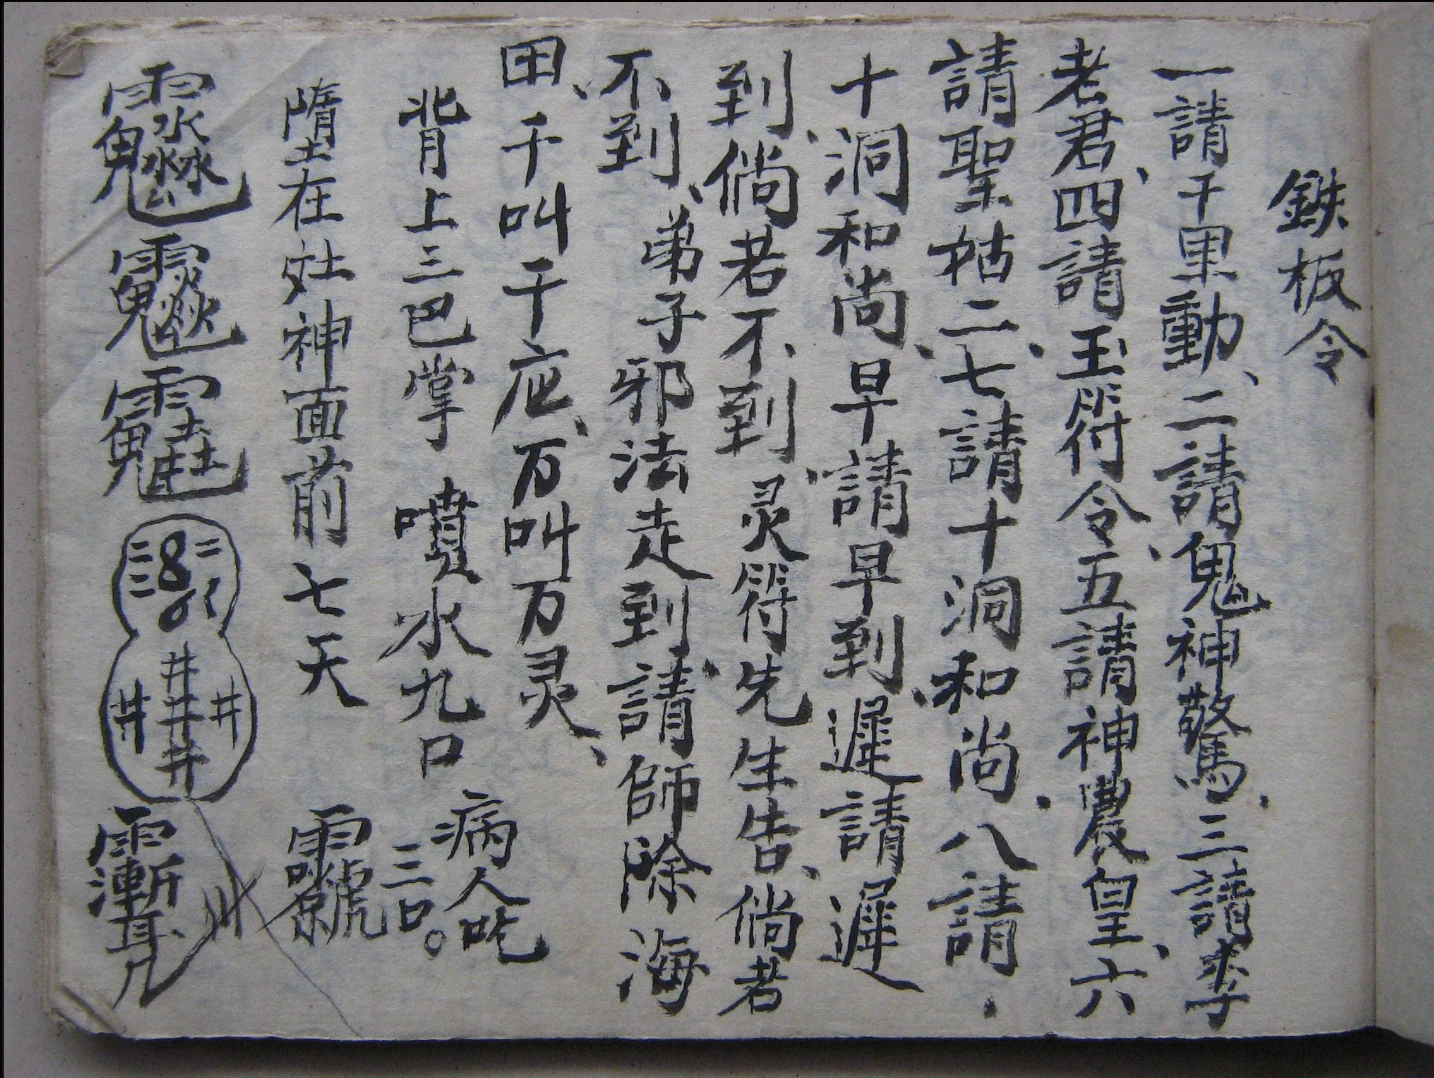 鉄板令
一請千里動、二請鬼神驚、三請李
老君、四請玉符令、五請神農皇、六
請聖姑二、七請十洞和尚、八請、
十洞和尚、早請早到、遲請遲
到、倘若不到、灵符先生告、倘者
不到、弟子邪法走到、請師除海
田、千叫千应、万叫万灵、
背上三巴掌 噴水九口
病人吃
三口。
墮在灶神面前七天